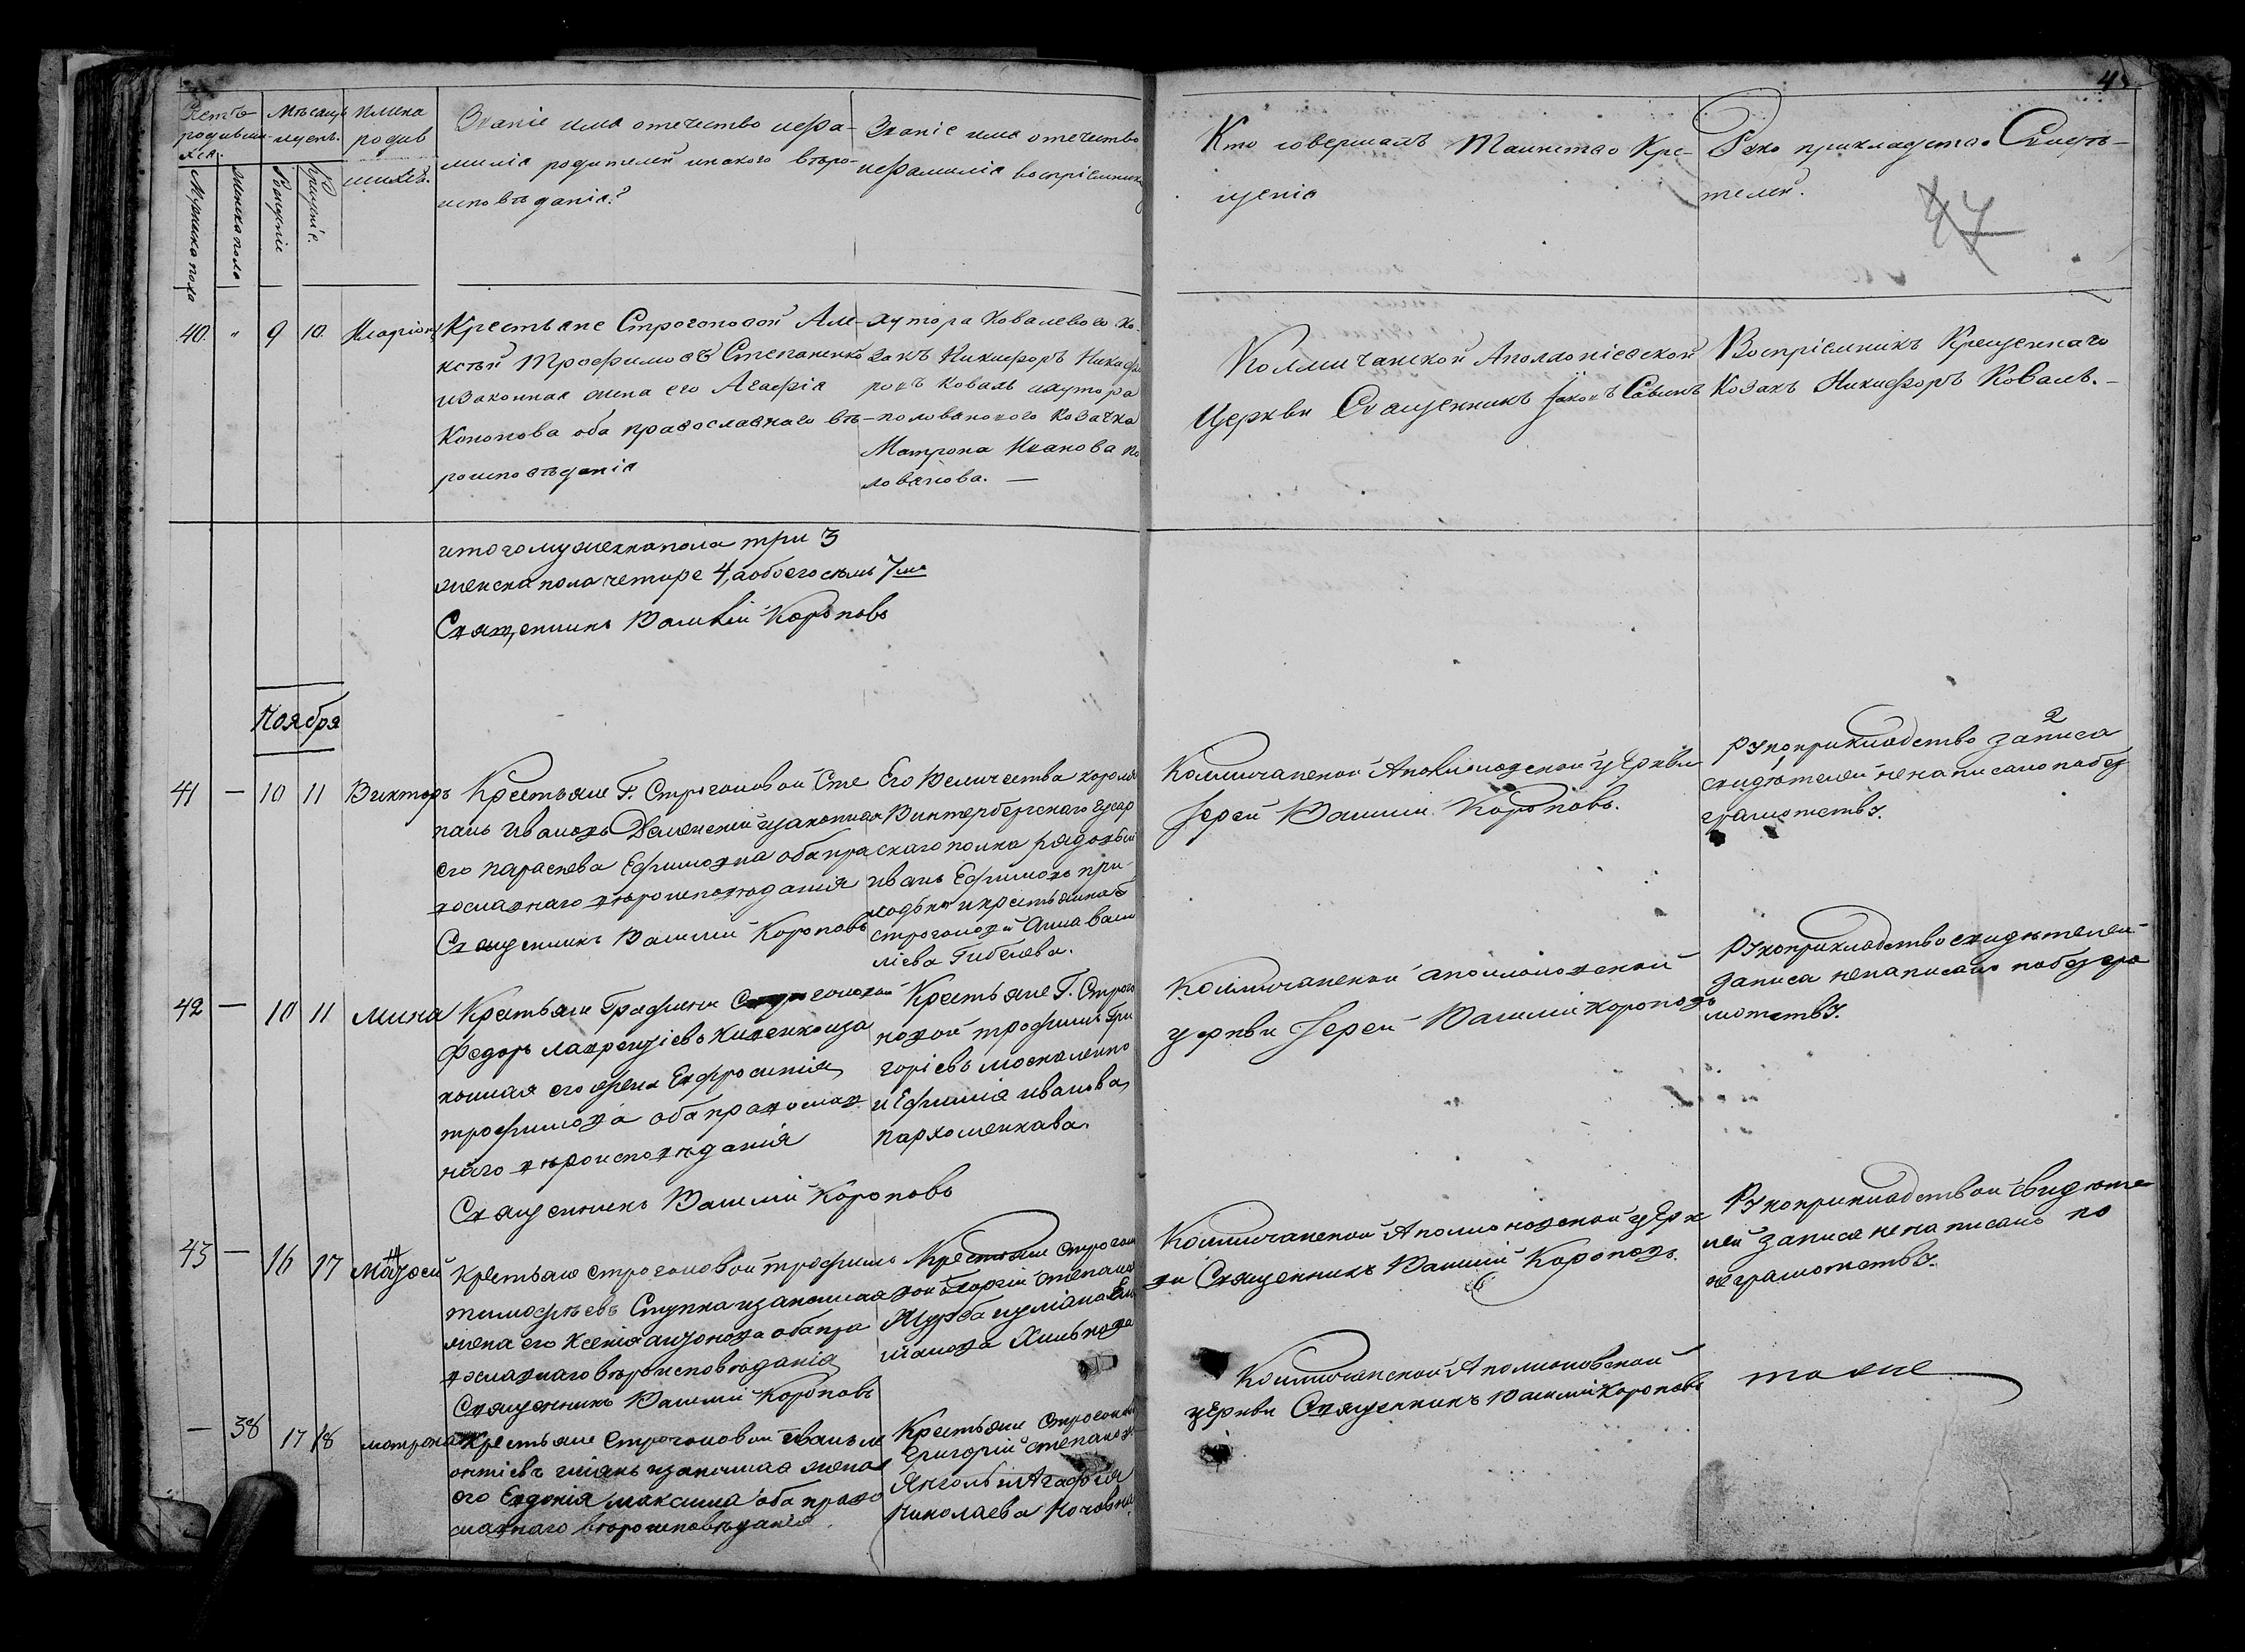 Счетъ
родивши
хся
Мѣсяцъ
и день.
Имена
родив
шихся.
Мужска пола
Женска пола
Рожденіе
Крщеніе.
Званіе имя отечество и фа-
милія родителей и какого вѣро-
исповѣданія?
Званіе имя отечество
и фамилія воспріемник
Кто совершалъ Таинство Кре-
щенія
Руко прикладство Свидѣ-
телей.
47
40. " 9 10. Иларіонъ
Крестьяне Строгоновой Але-
ксѣй Трофимовъ Степаненко
и законная жена его Агафія
Кононова оба православнаго вѣ-
роисповѣданія
хутора Ковалевого ко-
закъ Никифоръ Никифо
ровъ Коваль и хутора
полованового козачка
Матрона Иванова По
лованова. —
Коллычанской Аполоніевской
Церкви Священникъ Іаковъ Савинъ
Воспріемникъ Крещеннаго
Козакъ Никифоръ Коваль. –
итого мужеска пола три 3
женска пола четыре 4, а обоего семь 7мь
Священникъ Василій Короповъ
Ноября
41 — 10 11 Викторъ
Крестьяне Г. Строгоновой Сте
панъ Ивановъ и законная
его Параскева Ефимовна оба пра
вославнаго вѣроисповѣданія
Священникъ Василій Короповъ
Его Величества короля
Винтербергскаго гусар
скаго полка рядовый
Иванъ Ефимовъ при
ходько и крестьянка
строгоновой Анна Васи
ліева Гибелева.
Коллычанской Аполлоновской церкви
Іерей Василій Короповъ.
Рукоприкладство записа
свидѣтелей не написано по без
грамотству.
42 — 10 11 Мина
Крестьяне Графини Строгоновой
Федоръ Лаврентіевъ и за
конная его жена Евфросинія
трофимова оба православ
наго вѣроисповѣданія
Священникъ Василій Короповъ
Крестьяне Г. Строго
новой трофимъ Гри
горіевъ москаленко
и Ефимія Иванова
Пархоменкава.
Коллычанской аполлоновской
церкви Іерей Василій Короповъ
Рукоприкладство свидѣтелей
записа не написано по безгра
мотству.
43 — 16 17
Крестьяне Строгоновой трофимъ
тимофѣевъ Ступка и законная
жена его Ксенія оба пра
вославнаго вѣроисповѣданія
Священникъ Василій Короповъ
Крестьяне Строгон
вой Георгій Степанов
Журба и уліана
Хилькова
Коллычанской Аполлоновской церк
ви Священникъ Василій Короповъ.
Рукоприкладствои свидѣте
лей записа не написано по
неграмотству.
— 38 17 18 матрона
Крестьяне Строгоновой Иванъ ле
онтіевъ и законная жена
его Евдокія максима оба право
славнаго вѣроисповѣданія
Крестьяне Строгонов
Григорій степанов
Янголь и Агафія
Николаева
Коллычанской Аполлоновской
церкви Священникъ Василій Короповъ
тоже